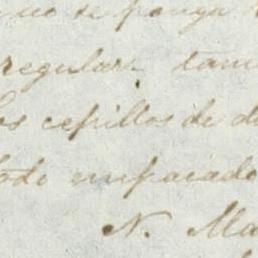 se ponga
regular tam
los cepillos de d
todo empacado
N. Ma